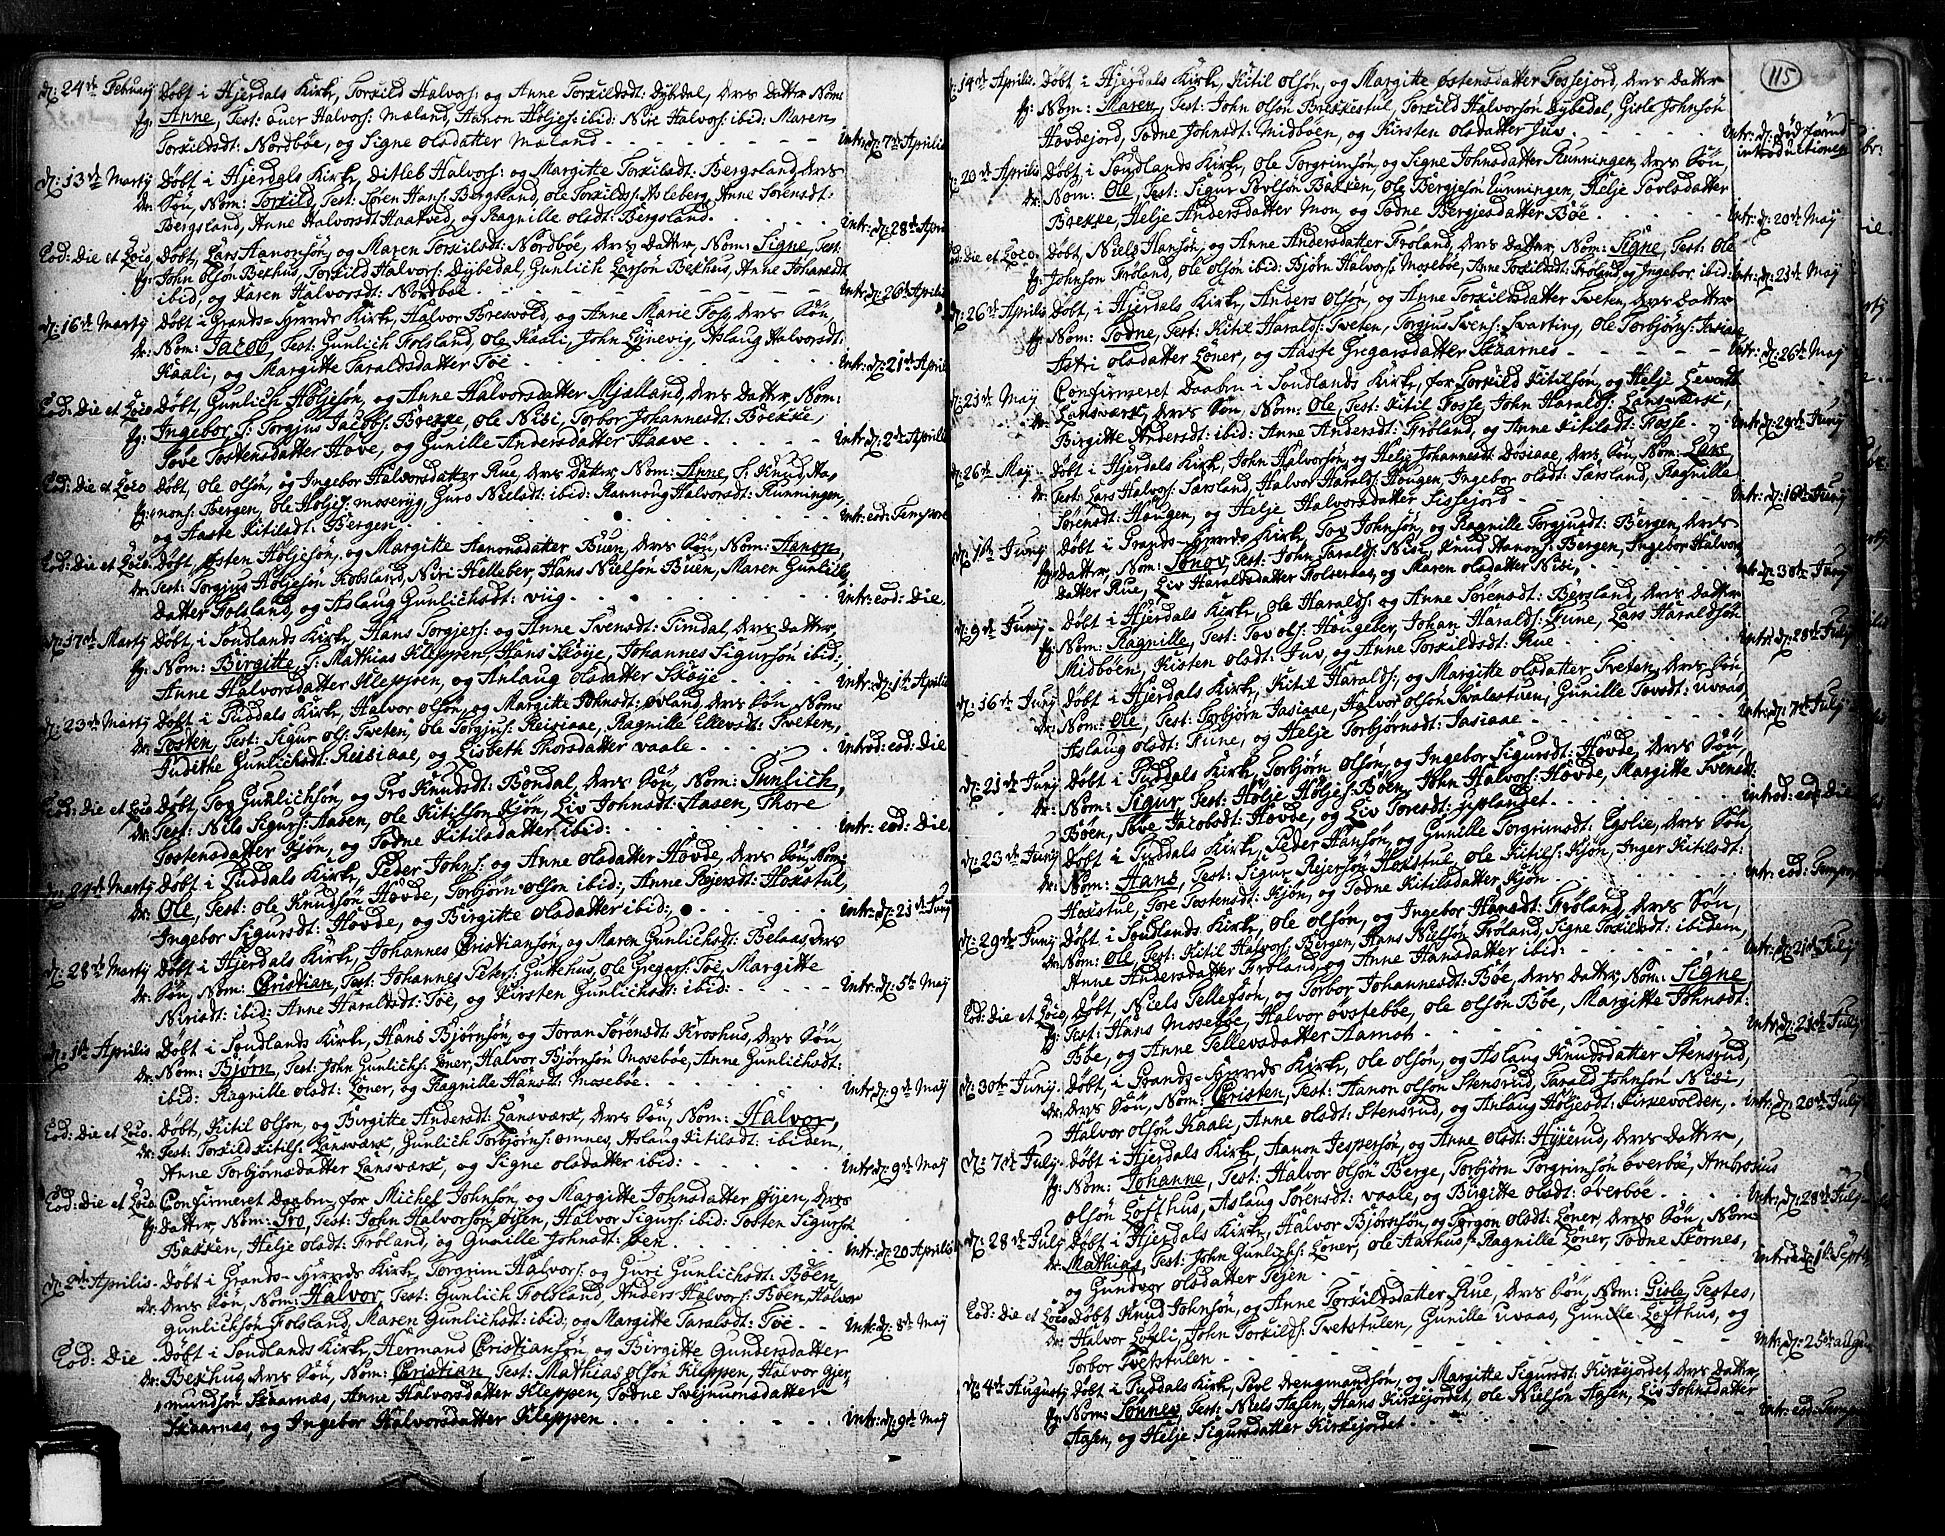 d: 24de Februarÿ Døbt i Hjerdals Kirke, Torkild Halvors: og Anne Torkildsdt: Dybdal, deres datter Nom:
fg: Anne, Test: Halvors: Mæland, Aanon Höljes: ibid: Niri Halvors: ibid: Maren
Torkildsdt: Nordböe, og Signe olsdatter Mæland - - - Intr: d: 7de Aprilis
d: 13de Martÿ Døbt i Hjerdals Kirke, Ditleb Halvors: og Margitte Torkildsdt: Bergsland, deres
dr: Sön, Nom: Torkild, Test: Sören Hans: Bergsland, ole Torkilds: Asleberg, Anne Sörensdt:
Bergsland, Anne Halvorsdt Haatved, og Ragnille olsdt: Bergsland. - - - Intr: d: 28de April
Eod: Die et Loco, Døbt, Lars Aanonsön, og Maren Torkilsdt: Nordböe, deres datter, Nom: Signe, Test:
fg: John olsön Bekhus, Torkild Halvors: Dybedal, Gunlich Larsön Bekhus, Anne Johansdt
ibid, og Karen Halvorsdt: Nordböe - - - Intr: d: 26de Aprilis
d: 16de Martÿ Døbt i Grands-Herreds Kirke, Halvor Bresvold, og Anne Marie Foss, deres Sön,
dr: Nom: Jacob, Test: Gunlich Folsland, ole Kaali, John Leinevig, Aslaug Halvorsdt:
Kaali, og Margitte Taraldsdatter Töe - - - Intr: d: 21de April
Eod: Die et Loco Døbt, Gunlich Höljesön, og Anne Halvorsdatter Mjælland, deres datter, Nom:
fg: Ingebor, T: Torgius Jacobs: Brekke, ole Nisi, Torbor Johannesdt: Brekke,
Töve Tostensdatter Hove, og Gunille Andersdatter Haave - - - Intr: d: 2de Aprilis
Eod: Die et Loco Døbt, ole olsön, og Ingebor Halvorsdatter Rue, deres datter, Nom: Anne, T: Knud Aa-
fg: nons: Bergen, ole Höljes: Guro Nielsdt: ibid: Rannoug Halvorsdt: Runningen,
og Aaste Kitilsdt: Bergen - - - Intr: eod: Tempore
Eod: Die et Loco Døbt, Østen Höljesön, og Margitte Aanonsdatter Buen, deres Sön, Nom: Hans,
dr: Test: Torgius Höljesön Kobsland, Niri Helleber, Hans Nielsön Buen, Maren Gunlichs
datter Folsland, og Aslaug Gunlichsdt: viig - - - Intr: eod: Die.
d: 17de Martÿ Døbt, i Soudlands Kirke, Hans Torgjers: og Anne Svensdt: Timdal, deres datter,
fg: Nom: Birgitte, T: Mathias Kleppen, Hans Sköÿe, Johannes Sigursön ibid:
Anne Halvorsdatter Kleppen, og Anlaug olsdatter Sköÿe - - - Intr: d: 1te Aprilis
d: 23de Martÿ Døbt i Tuddals Kirke, Halvor olsön, og Margitte Johnsdt: øvland, deres Sön, Nom:
dr: Tosten, Test: Sigur ols: Tveten, ole Torgjus: Reisiaae, Ragnille Ellevsdt: Tveten,
Judithe Gunlichsdt: Reisiaae, og Lisbeth Thorsdatter vaale - - - Introd: eod: Die
Eod: Die et Loco Døbt, Tov Gunlichsön, og Gro Knudsdt: Bondal, deres Sön, Nom: Gunlich,
dr: Test: Nils Sigurs: Aasen, ole Kitilsön Kjön, Liv Johnsdt: Aasen, Thore
Tostensdatter Kjön, og Todne Kitilsdatter ibid: - - - Intr: eod: Die.
d: 24de Martÿ Døbt i Tuddals Kirke, Peder Johns: og Anne olsdatter Hovde, deres Sön, Nom:
dr: Ole, Test: ole Knudsön Hovde, Torbjörn olsön ibid:, Anne Rejersdt: Hoxstul,
Ingebor Sigursdt: Hovde, og Birgitte olsdatter ibid: - - - Intr: d: 21de Junÿ
d: 28de Martÿ Døbt i Hjerdals Kirke, Johannes Christiansön, og Maren Gunlichsdt: Belaas, deres
dr: Sön, Nom: Christian, Test: Johannes Peters: Gutthus, ole Gregars: Töe, Margitte
Nirisdt: ibid: Anne Haraldsdt: Töe, og Kirsten Gunlichsdt: ibid: - - - Intr: d: 5te Maÿ
d: 1te Aprilis Døbt i Soudlands Kirke, Hans Bjørnsön, og Joran Sörensdt: Kroshus, deres Sön,
dr: Nom: Bjørn, Test: John Gunlichs: Löner, Halvor Bjørnsön Moseböe, Anne Gunlichsdt:
ibid: Ragnille olsdt: Löner, og Ragnille Hansdt: Moseböe - - - Intr: d: 9de Maÿ
Eod: Die et Loco. Døbt, Kitil olsön, og Birgitte Andersdt: Lansværk, deres Sön, Nom: Halvor,
dr: Test: Torkild Kitils: Lansværk, Gunlich Torbjörns: omnes, Aslaug Kitilsdt: ibidem,
Anne Torbjörnsdatter Lansværk, og Signe olsdatter ibid: - - - Intr: d: 9de Maÿ
Eod: Die et Loco Confirmeret Daaben, for Michel Johnsön, og Margitte Johnsdatter Øÿen, deres
fg: datter, Nom: Gro, Test: John Halvorsön Øÿen, Halvor Sigurs: ibid: Tosten Sigursön
Bakken, Helje olsdt: Fröland, og Gunille Johnsdt: Øÿen - - - Intr: d: 20 Aprilis
d: 2de Aprilis - Døbt i Grands-Herreds Kirke, Torgrim Halvors: og Guri Gunlichsdt: Böen,
dr: deres Sön, Nom: Halvor, Test: Gunlich Folsland, Anders Halvors: Böen, Halvor
Gunlichsön Folsland, Maren Gunlichsdt: ibid:, og Margitte Taralsdt: Töe - - - Intr: d: 8de Maÿ
Eod: Die - Døbt i Soudlands Kirke, Hermand Christiansön, og Birgitte Gundersdatter
dr: Bekhus, deres Sön, Nom: Christian, Test: Mathias olsön Kleppen, Halvor Gjer-
mundsön Skaarnæs, Anne Halvorsdatter Kleppen, Todne Svejnumsdatter
Skaarnæs, og Ingebor Halvorsdatter Kleppen - - - Intr: d: 9de Maÿ
115
d: 14de Aprilis. Døbt, i Hjerdals Kirke, Kitil olsön, og Margitte Østensdatter Fossejord, deres datter
fg: Nom: Maren, Test: John olsön Brekkestul, Torkild Halvorsön Dybedal, Gisle Johnsön
Hovdejord, Todne Johnsdt: Midböen, og Kirsten olsdatter Juv - - - Intr: d: död förend introductionen
d: 20de Aprilis Døbt, i Soudlands Kirke, Ole Torgrimsön, og Signe Johnsdatter Runningen, deres Sön,
dr: Nom: Ole, Test: Sigur Povlsön Bakken, Ole Bergjesön Runningen, Helje Povlsdatter
Brekke, Helje Andersdatter Mon, og Todne Bergjesdatter Böe - - - Intr: d: 20de Maÿ
Eod: Die et Loco. Døbt, Niels Hansön, og Anne Andersdatter Fröland, deres datter, Nom: Signe, Test: Ole
fg: Johnsön Fröland, Ole olsön ibid: Bjørn Halvors: Moseböe, Anne Torkildsdt: Fröland, og Ingebor ibid: Intr: d: 21de Maÿ
d: 26de Aprilis Døbt, i Hjerdals Kirke, Anders olsön, og Anne Torkildsdatter Tveten, deres datter
fg: Nom: Todne, Test: Kitil Harald: Tveten, Torgius Svens: Svarting, Ole Torbjørns: Jasiaae
Astri olsdatter Löner, og Aaste Gregarsdatter Skaarnes - - - Intr: d: 26de Maÿ
d: 21de Maÿ Confirmeret Daaben, i Soudlands Kirke, for Torkild Kitilsön, og Helje Levordt
dr: Lansværk, deres Sön, Nom: Ole, Test: Kitil Fosse, John Harald: Lansværk,
Birgitte Andersdt: ibid: Anne Andersdt: Fröland, og Anne Kitilsdt: Fosse - Intr: d: 29de Junÿ
d: 26de Maÿ - Døbt, i Hjerdals Kirke, John Halvorsön, og Helje Johannesdt: Døsiaae, deres Sön, Nom: Lars,
dr: Test: Lars Halvors: Særsland, Halvor Harald: Hougen, Ingebor olsdt: Særsland, Ragnille
Sörensdt: Hougen, og Helje Halvorsdatter Sissejord - - - Intr: d: 16de Junÿ
d: 1te Junÿ Døbt i Grands-Herreds Kirke, Tov Johnsön, og Ragnille Torgjusdt: Bergen, deres
fg: datter, Nom: Sönov, Test: John Tarald: Nisi, Knud Aanons: Bergen, Ingebor Halvors
datter Rue, Liv Haraldsdatter Folseraas, og Maren olsdatter Nisi, - - - Intr: d: 30de Junÿ
d: 9de Junÿ - Døbt, i Hjerdals Kirke, Ole Haralds: og Anne Sörensdt: Bersland, deres datter
fg: Nom: Ragnille, Test: Tov ols: Hougeber, Johan Harald: Fune, Lars Haraldsön
Midböen, Kisten olsdt: Juv, og Anne Torkildsdt: Rue Intr: d: 28de Julÿ
d: 16de Junÿ Døbt, i Hjerdals Kirke, Kitil Harald: og Margitte olsdatter Tveten, deres Sön,
dr: Nom: Ole, Test: Torbjörn Jasiaae, Halvor olsön Kvalestuen, Gunille Tovsdt: uvaas
Aslaug olsdt: Fune, og Helje Torbjörnsdt: Jasiaae - - - Intr: d: 7de Julÿ
d: 21de Junÿ Døbt i Tuddals Kirke, Torbjörn Olsön, og Ingebor Sigursdt: Hovde, deres Sön,
dr: Nom: Sigur, Test: Hölje Höljes: Böen, John Halvors: Hovde, Margitte Svensdt:
Böen, Töve Jacobsdt: Hovde, og Liv Toresdt: - - - Introd: eod: Die
d: 23de Junÿ Døbt i Tuddals Kirke, Peder Hansön, og Gunille Torgrimsdt: Lislie, deres Sön,
dr: Nom: Hans, Test: Sigur Rejersön Hoxstul, Ole Kitils: Kjön, Inger Kitilsdt:
Hoxstul, Tore Tostensdt: Kjön, og Todne Kitilsdatter Kjön - - - Intr: eod: Tempore
d: 29de Junÿ Døbt i Soudlands Kirke, Ole olsön, og Ingebor Hansdt: Fröland, deres Sön,
dr: Nom: Ole, Test: Kitil Halvors: Bergen, Hans Nielsön Fröland, Signe Torkilsdt: ibidem,
Anne Andersdatter Fröland, og Anne Hansdatter ibid: - - - Intr: d: 21de Julÿ
Eod: Die et Loco, Døbt, Niels Tellefsön, og Torbor Johannesdt: Böe, deres datter, Nom: Signe,
fg: Test: Hans Moseböe, Halvor övsteböe, ole olsön Böe, Margitte Johnsdt:
Böe, og Anne Tellevsdatter Aamot - - - Intr: d: 21de Julÿ
d: 30te Junÿ. Døbt, i Grands-Herreds Kirke, Ole olsön, og Aslaug Knudsdatter Stensrud,
dr: deres Sön, Nom: Christen, Test: Aanon olsön Stensrud, Tarald Johnsön Nisi,
Halvor olsön Kaali, Anne olsdt: Stensrud, og Anlaug Höljesdt: Kirkevolden, - Intr: d: 20de Julÿ
d: 7de Julÿ - Døbt i Hjerdals Kirke, Aanon Jespersön, og Anne olsdt: Hÿkerud, deres datter,
fg: Nom: Johanne, Test: Halvor olsön Berge, Torbjörn Torgrimsön överböe, Ambrosius
olsön Lofthus, Aslaug Sörensdt: vaale, og Birgitte olsdt: överböe - - - Intr: d: 28de Julÿ
d: 28de Julÿ Døbt i Hjerdals Kirke, Halvor Bjørnsön, og Torgon olsdt: Löner, deres Sön, Nom:
dr: Mathias, Test: John Gunlichs: Löner, Ole Aarhus, Ragnille Löner, Todne Skornes,
og Gundvor olsdatter Tejen - - - Introd: d: 1te Septb:
Eod: Die et Loco Døbt Knud Johnsön, og Anne Torkildsdatter Rue, deres Sön, Nom: Gisle, Testes,
dr: Halvor John Torkilds: Tvetstulen, Gunille uvaas, Gunille Lofthus, og
Torbor Tvetstulen - - - Intr: d: 25de August
d: 4de Augustÿ Døbt i Tuddals Kirke, Povl Drengmandsön, og Margitte Sigursdt: Kirkejordet, deres datter,
fg: Nom: Sønnev, Test: Niels Aasen, Hans Kirkejordet, ole Nielsön Aasen, Liv Johnsdatter
Aasen, og Helje Sigursdatter Kirkejordet - - - Intr: eod: Tempore